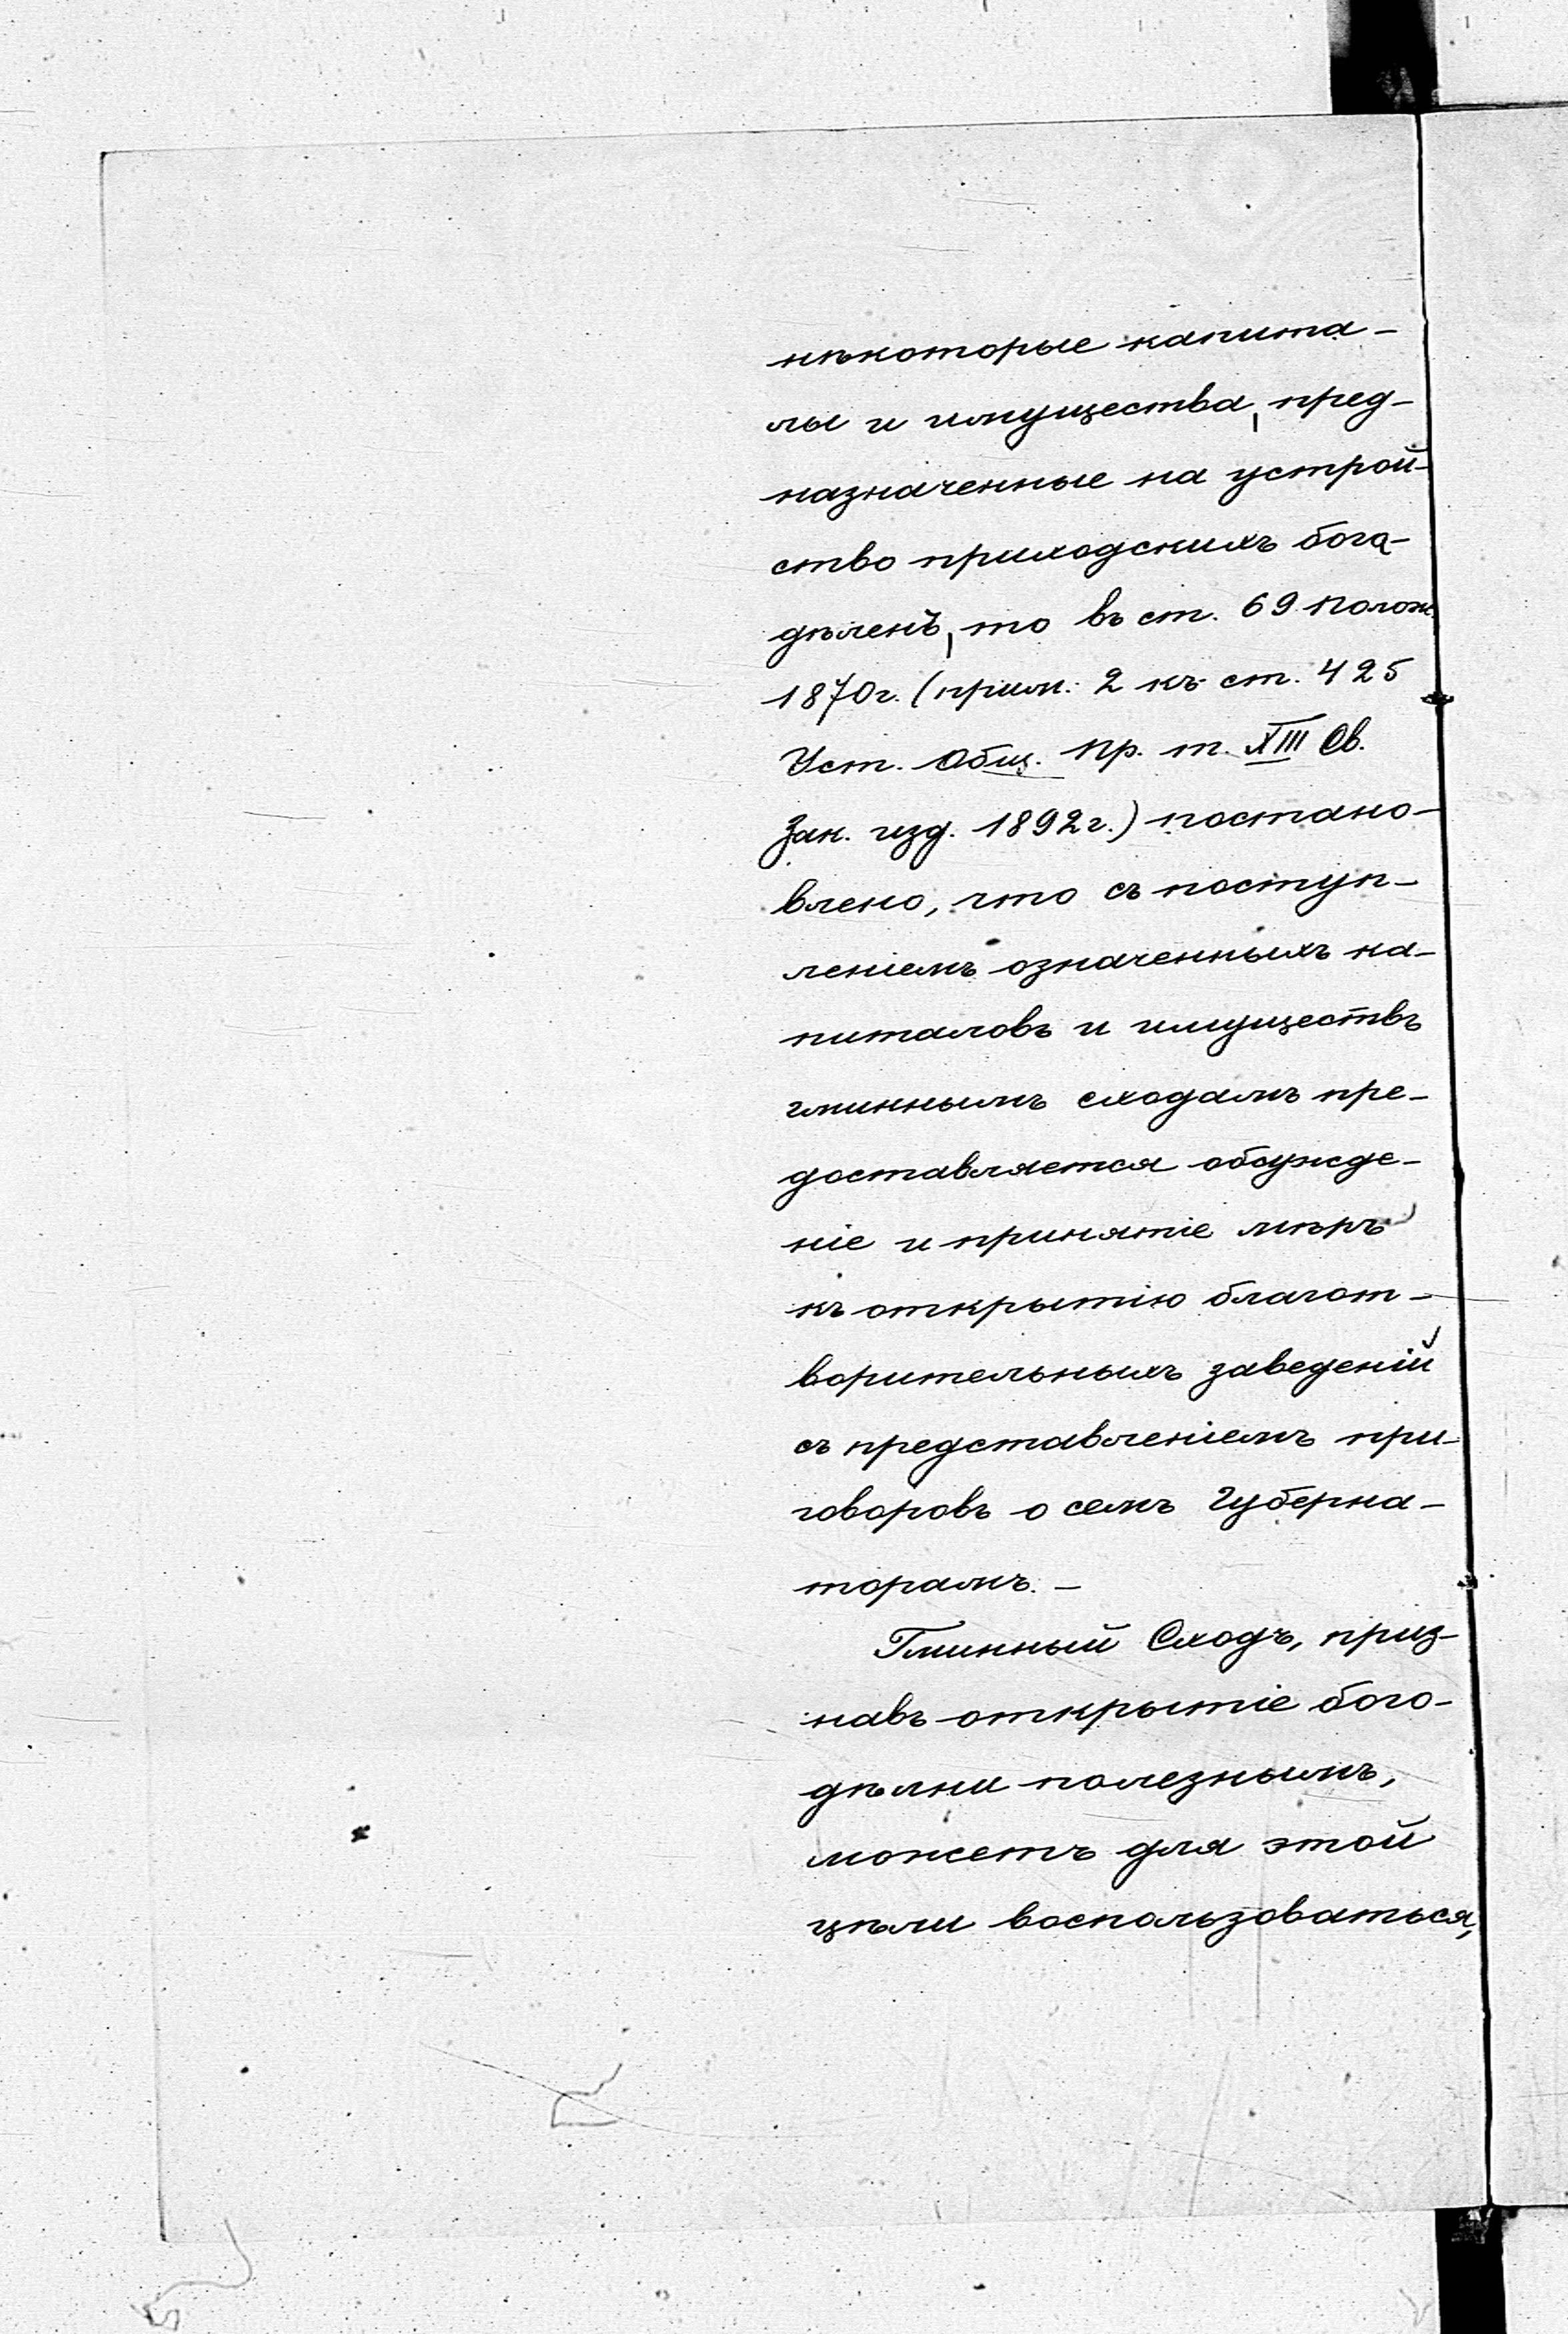 нѣкоторые капита-
лы и имущества, пред-
назначенные на устрой-
ство приходскихъ бога-
дѣленъ, то въ ст. 69 Полож.
1870г. (прим. 2 къ ст. 425
Уст. Общ. Пр. т. XIII Св.
Зак. изд. 1892г.) постано-
влено, что съ поступ-
леніемъ означенныхъ ка-
питаловъ и имуществъ
гминнымъ сходамъ пре-
доставляется обсужде-
ніе и принятіе мѣръ
къ открытію благот-
ворительныхъ заведеній
съ представленіемъ при-
говоровъ о семъ Губерна-
торамъ. –
Гминный Сходъ, приз-
навъ открытіе бого-
дѣлни полезнымъ,
можетъ для этой
цѣли воспользоваться,